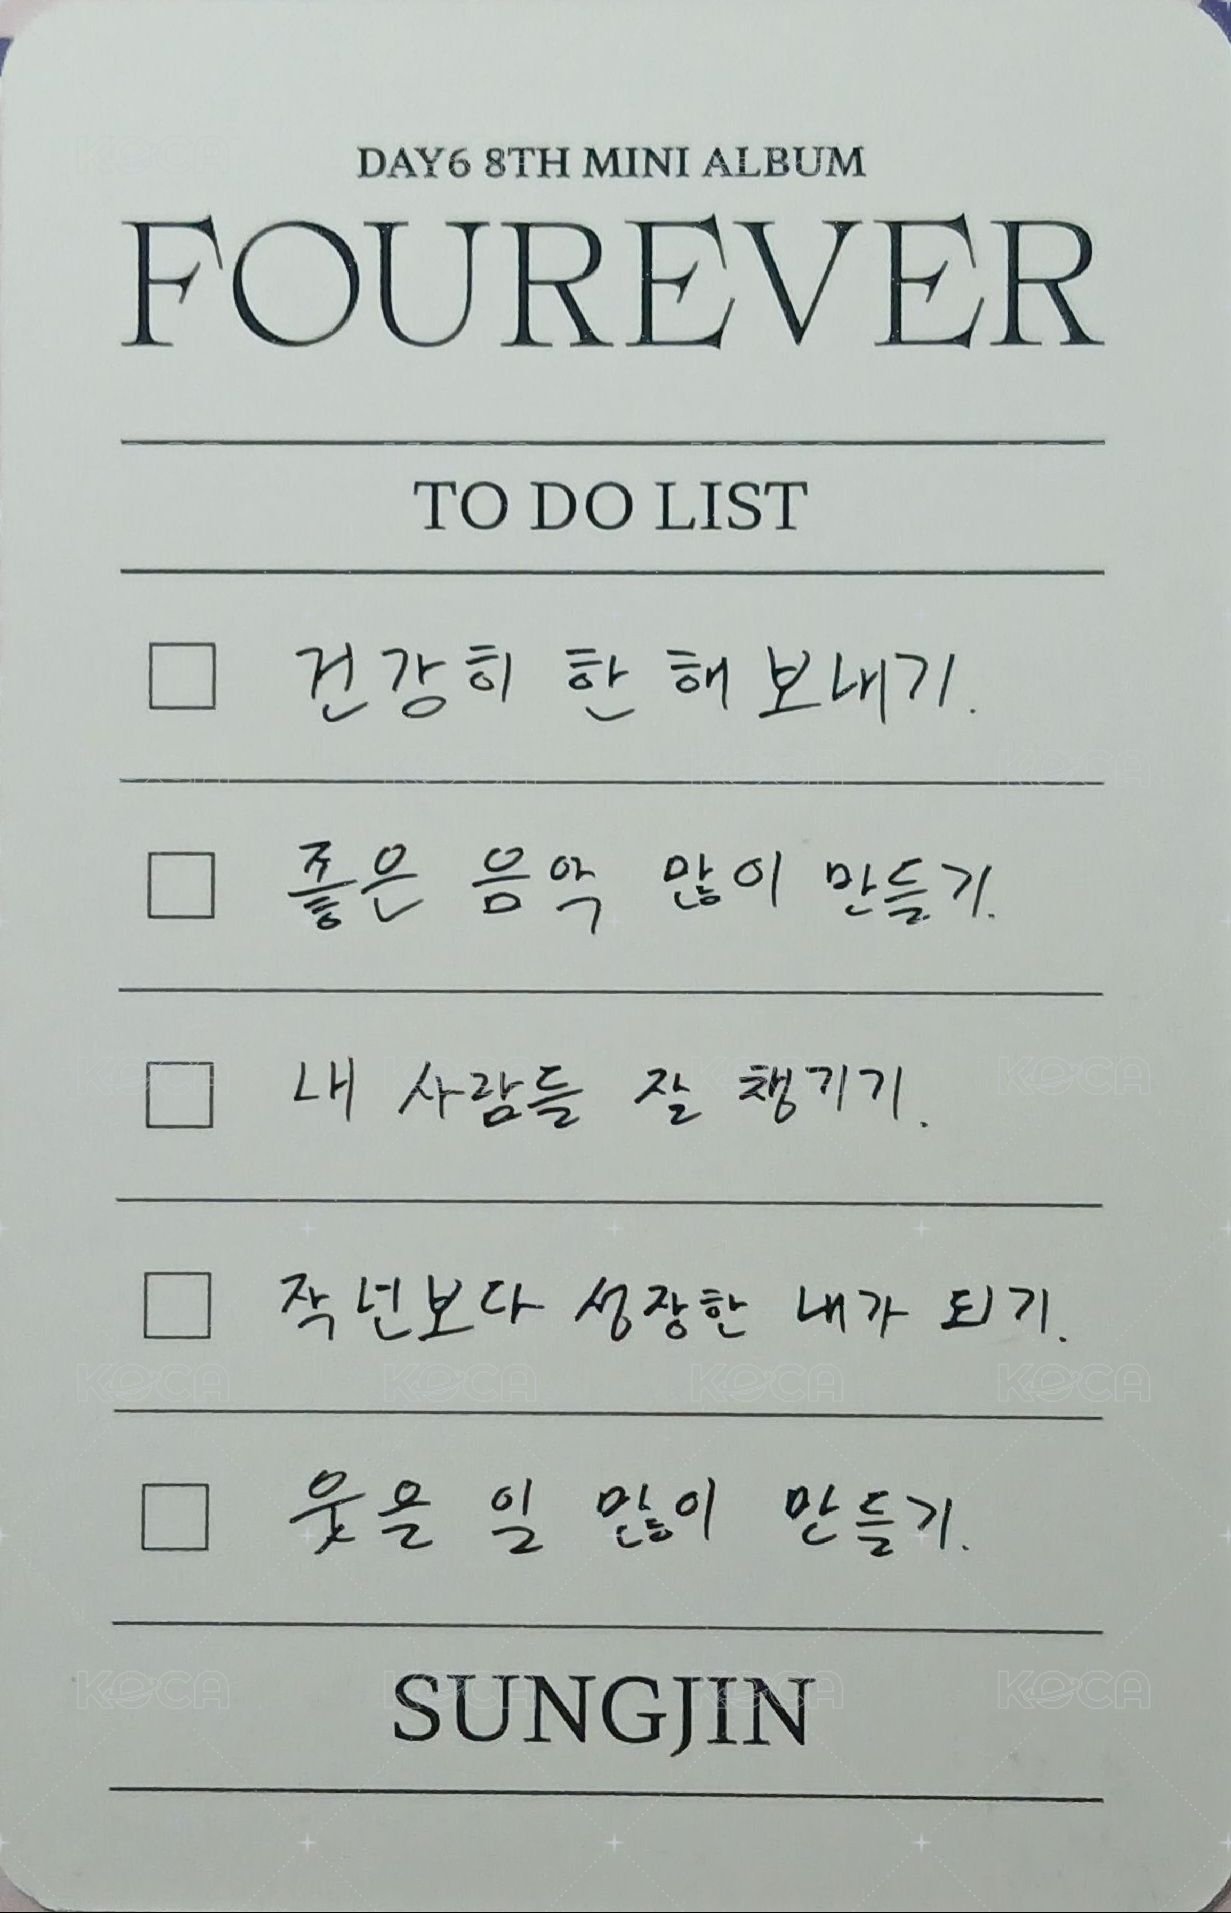 DAY6 8TH MINI ALBUM
FOUREVER
TO DO LIST
건강히 한 해 보내기.
좋은 음악 많이 만들기.
내 사람들 잘 챙기기.
작년보다 성장한 내가 되기.
웃을 일 많이 만들기.
SUNGJIN